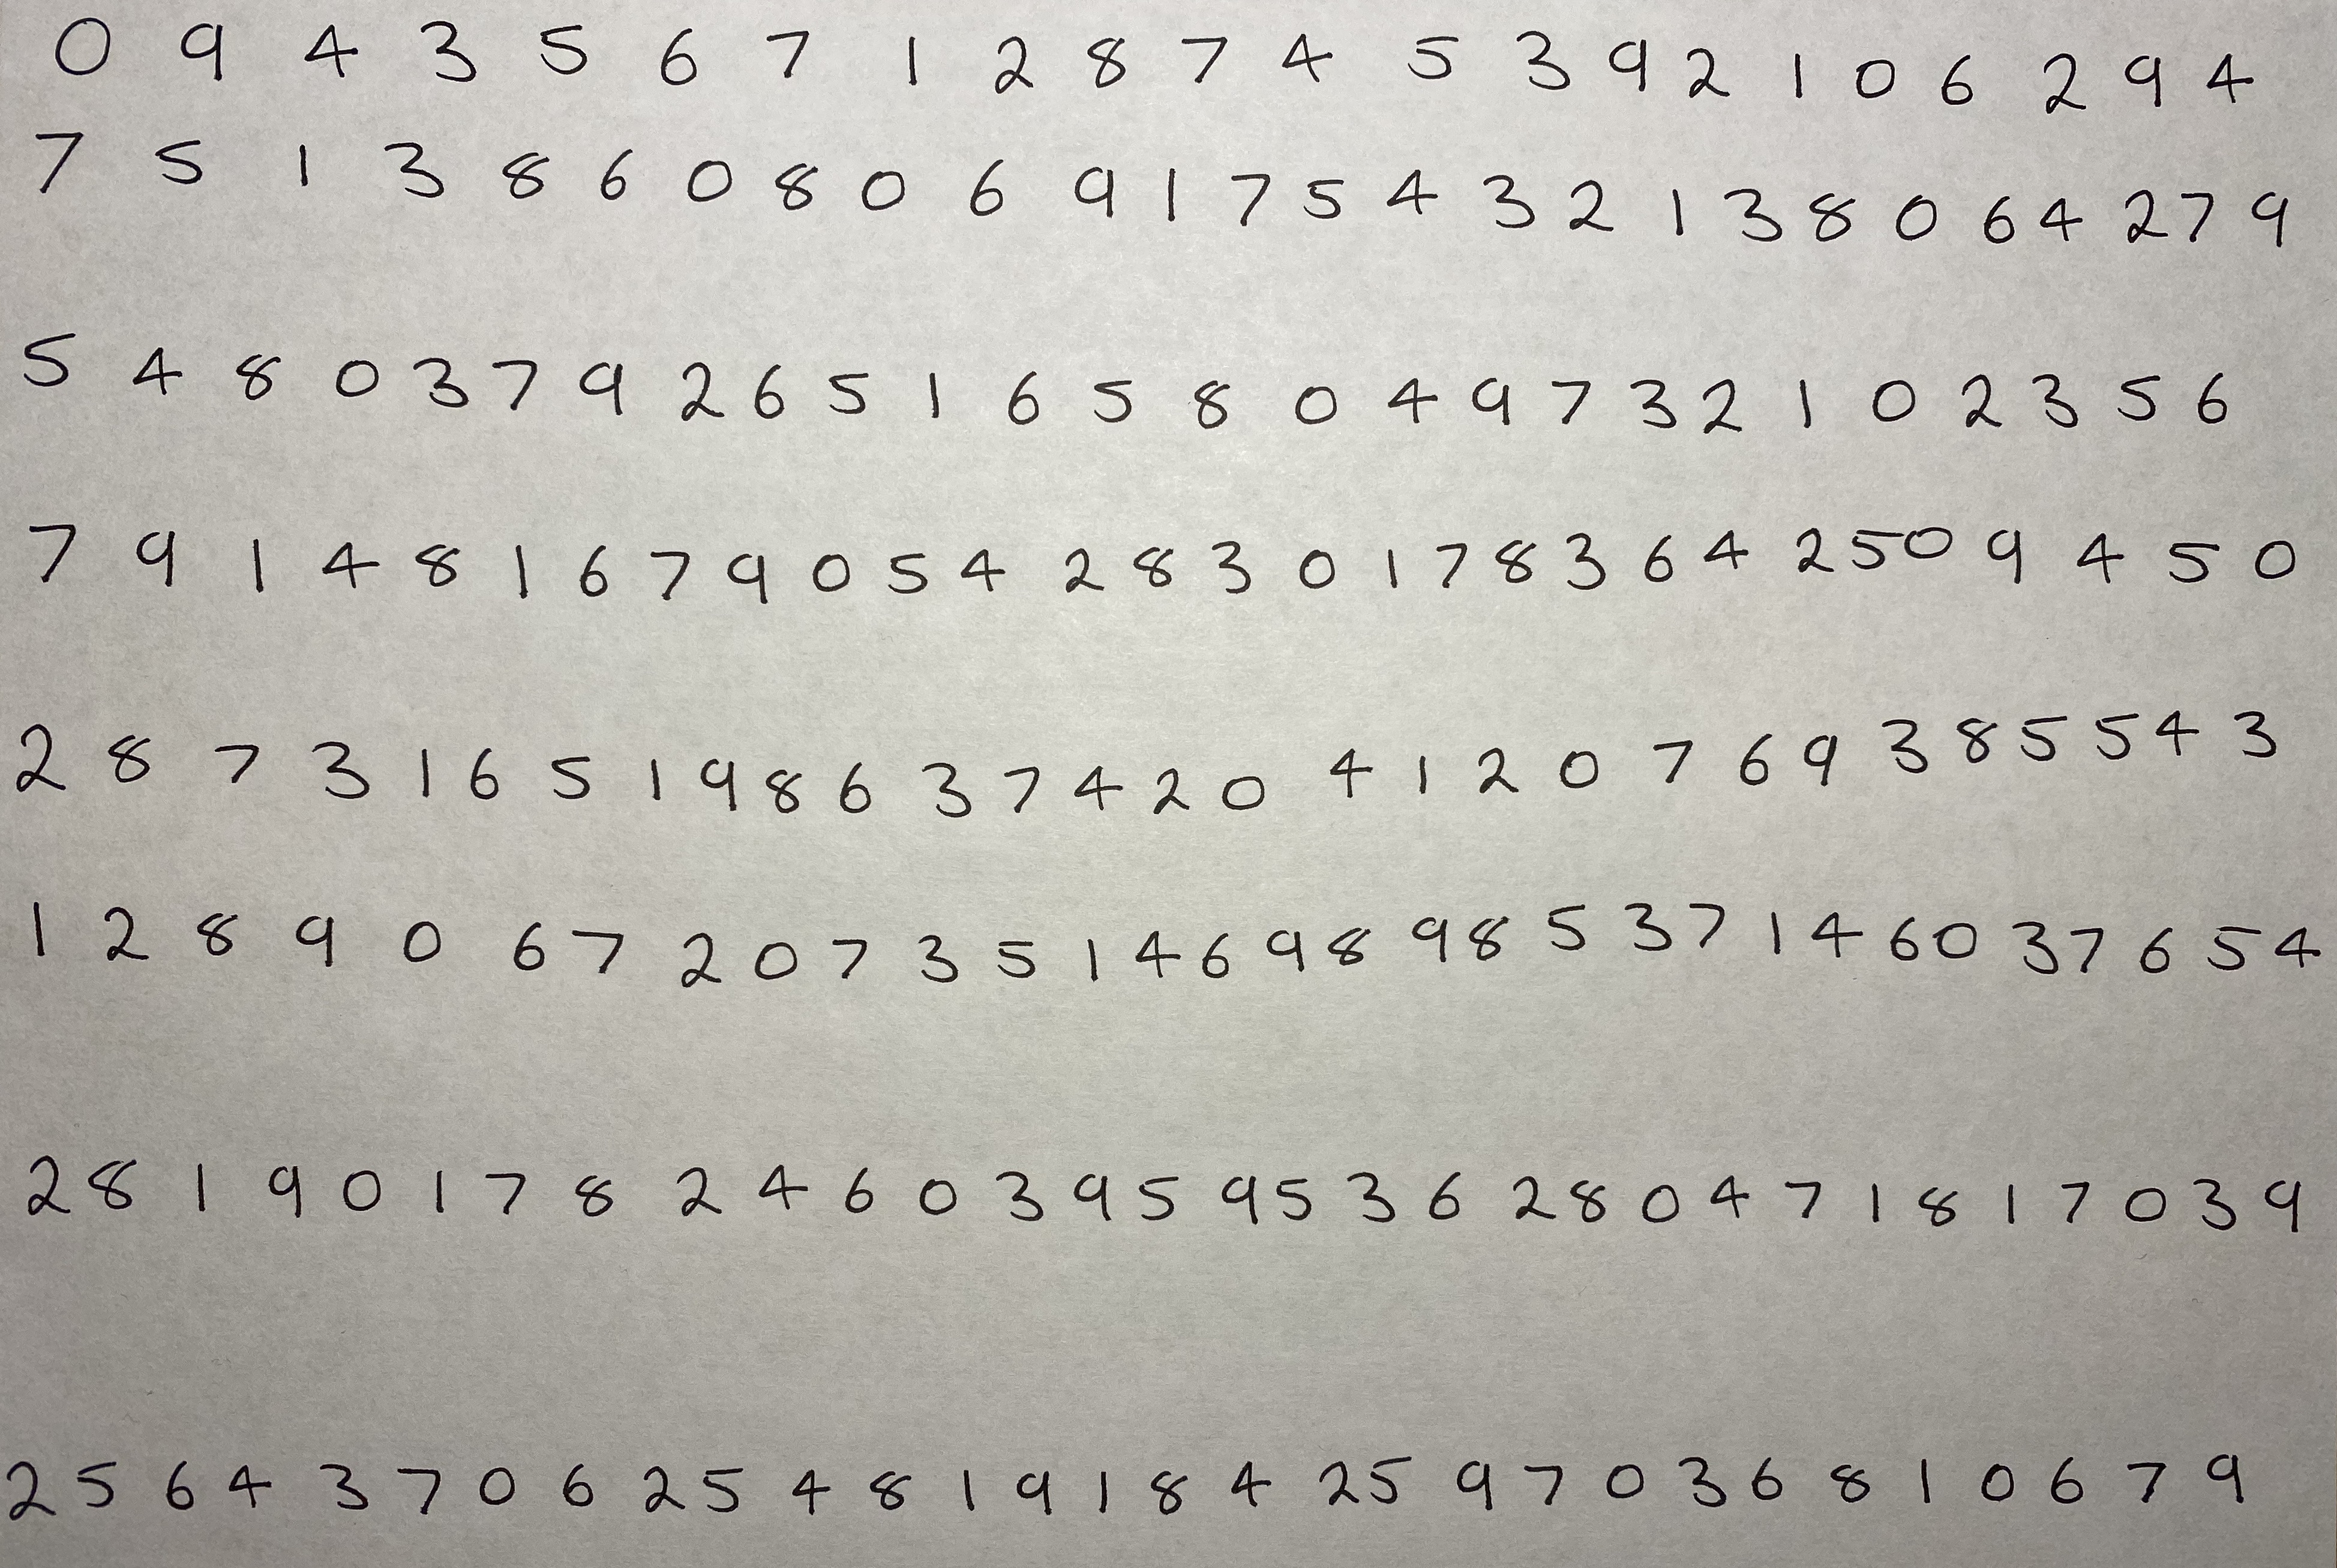 0 9 4 3 5 6 7 1 2 8 7 4 5 3 9 2 1 0 6 2 9 4
7 5 1 3 8 6 0 8 0 6 9 1 7 5 4 3 2 1 3 8 0 6 4 2 7 9
5 4 8 0 3 7 9 2 6 5 1 6 5 8 0 4 9 7 3 2 1 0 2 3 5 6
7 9 1 4 8 1 6 7 9 0 5 4 2 8 3 0 1 7 8 3 6 4 2 5 0 9 4 5 0
2 8 7 3 1 6 5 1 9 8 6 3 7 4 2 0 4 1 2 0 7 6 9 3 8 5 5 4 3
1 2 8 9 0 6 7 2 0 7 3 5 1 4 6 9 8 9 8 5 3 7 1 4 6 0 3 7 6 5 4
2 8 1 9 0 1 7 8 2 4 6 0 3 9 5 9 5 3 6 2 8 0 4 7 1 8 1 7 0 3 9
2 5 6 4 3 7 0 6 2 5 4 8 1 9 1 8 4 2 5 9 7 0 3 6 8 1 0 6 7 9